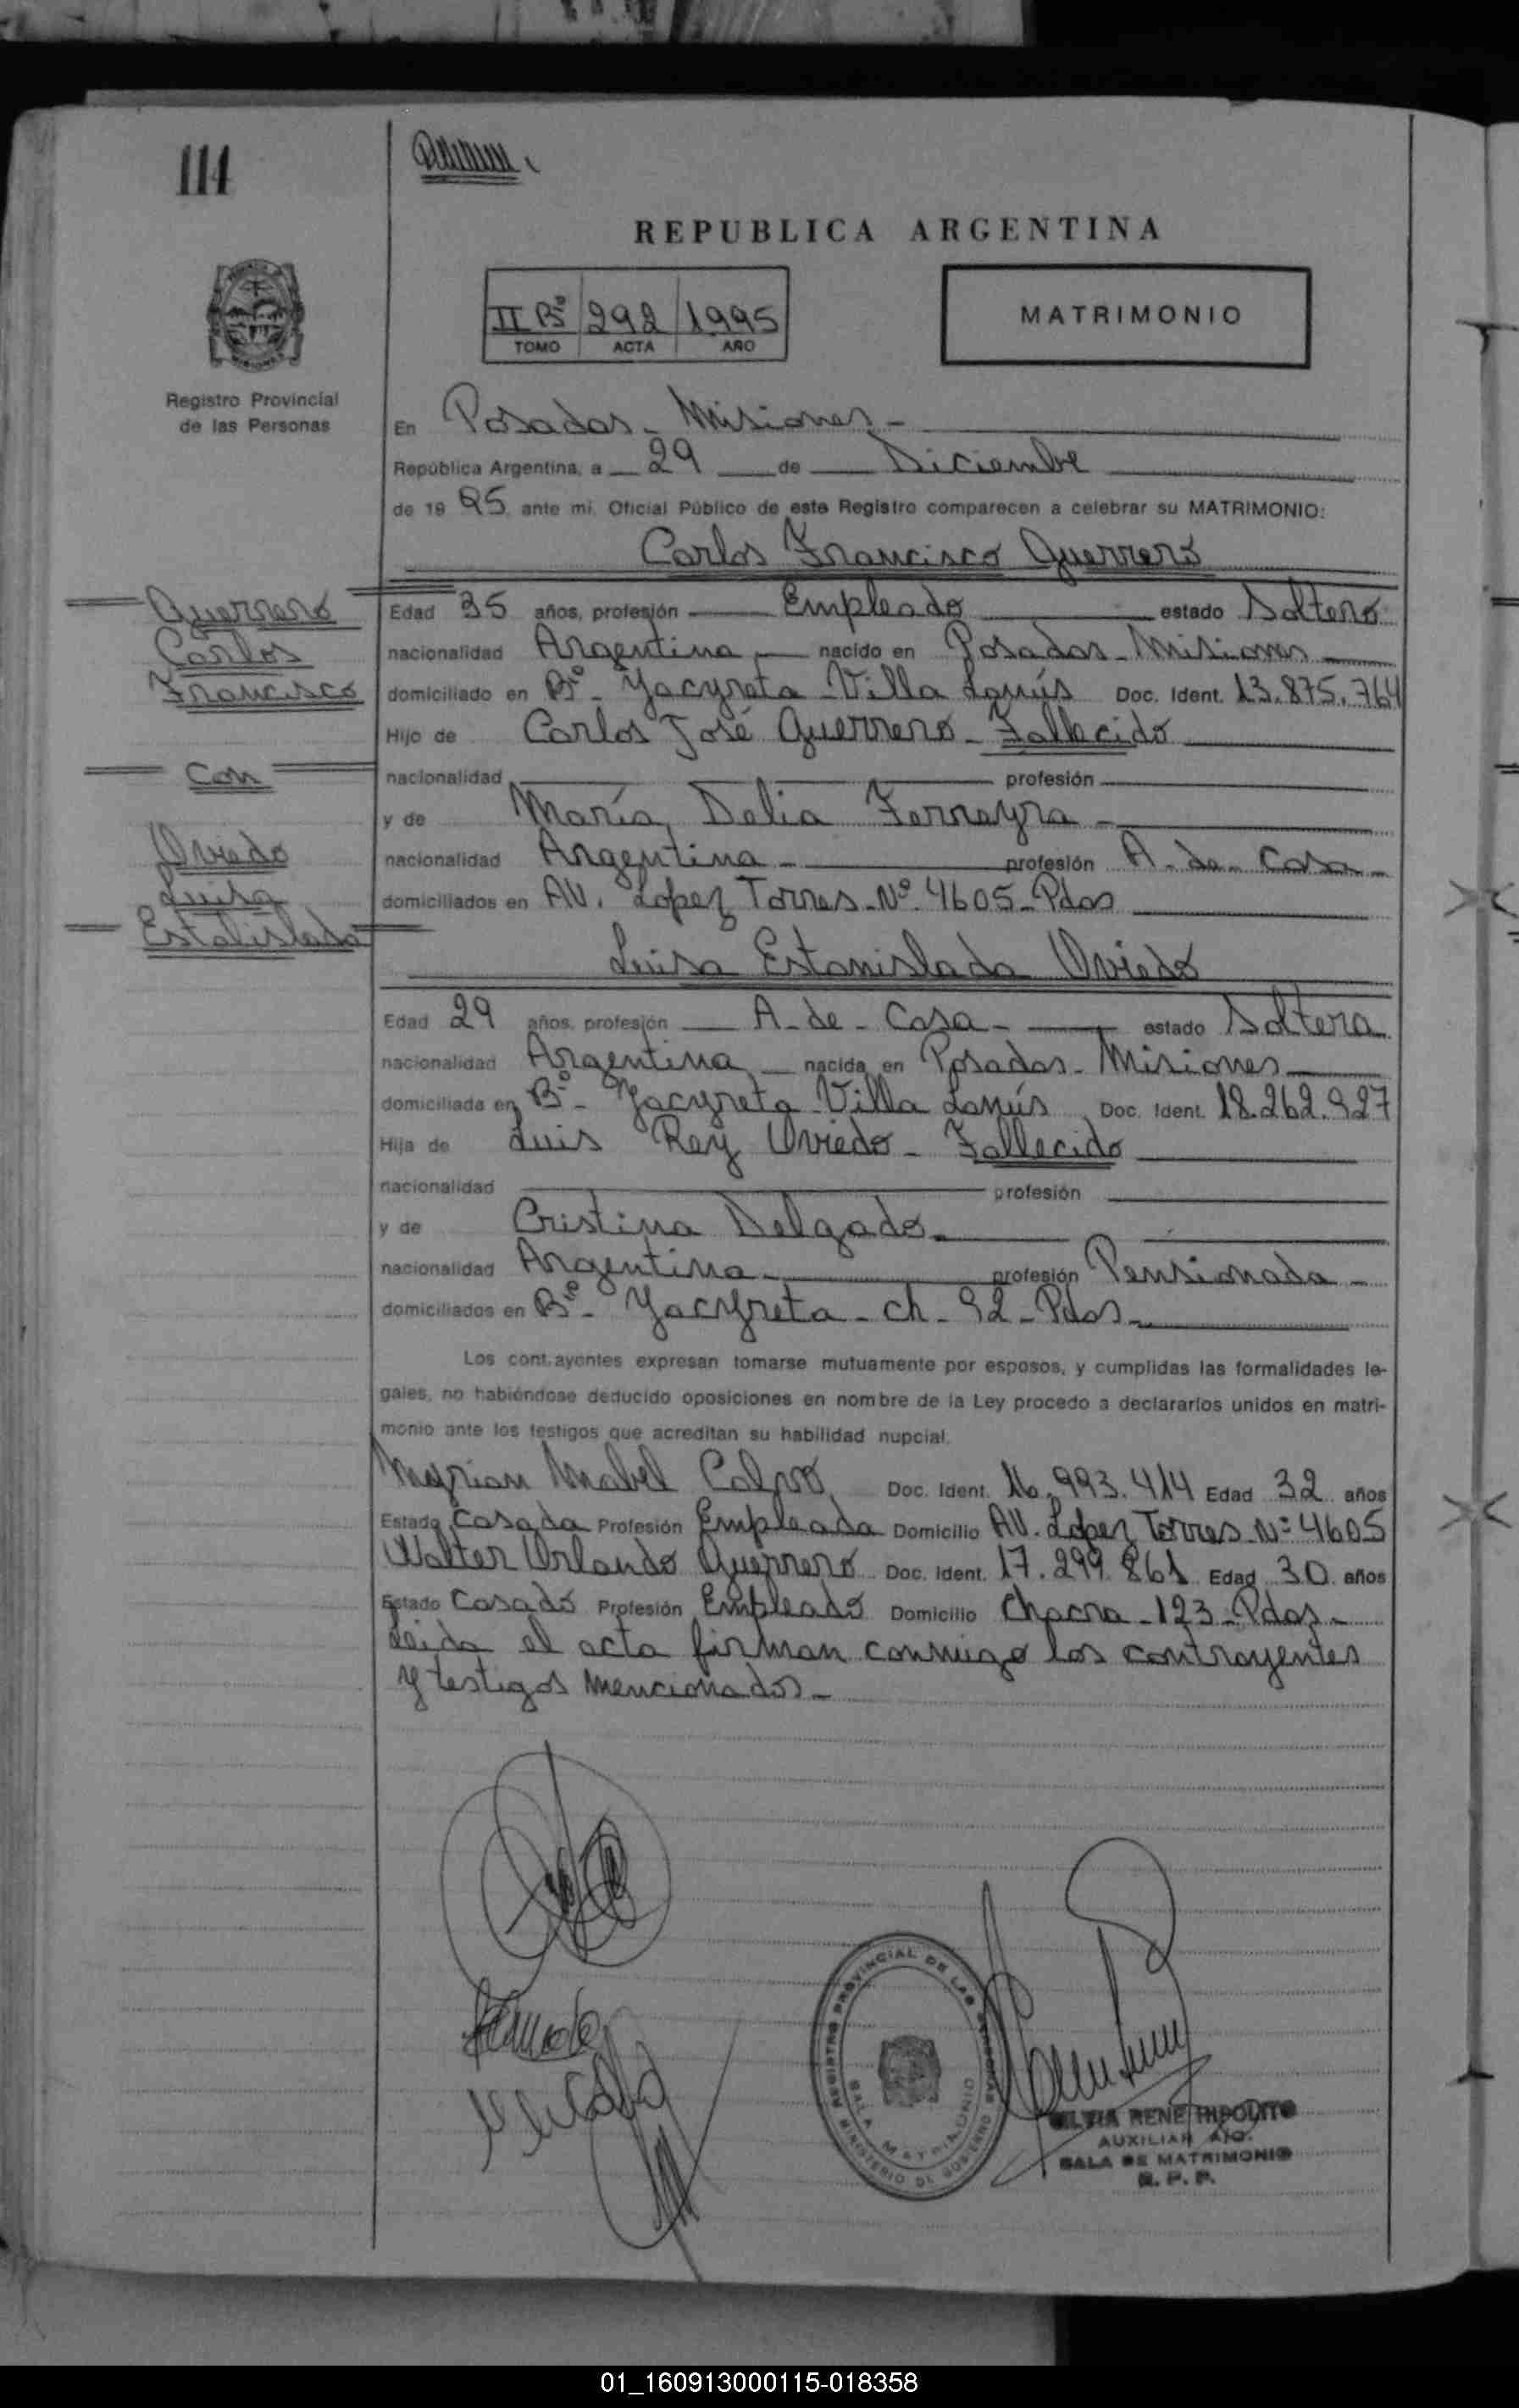 114
REPUBLICA ARGENTINA
II Bº 292 1995
TOMO ACTA AÑO
MATRIMONIO
Registro Provincial
de las Personas
En Posadas - Misiones -
República Argentina, a 29 de Diciembre
de 19 95 ante mi, Oficial Público de este Registro comparecen a celebrar su MATRIMONIO:
Carlos Francisco Guerrero
Guerrero
Carlos
Francisco
Con
Oviedo
Luisa
Estalislada
Edad 35 años, profesión Empleado estado Soltero
nacionalidad Argentina nacido en Posadas - Misiones
domiciliado en Bº - Yacyreta - Villa Lanús Doc. Ident. 13.875.764
Hijo de Carlos José Guerrero - Fallecido
nacionalidad profesión
y de María Delia Ferreyra -
nacionalidad Argentina - profesión A - de - Casa -
domiciliados en AV. Lopez Torres - Nº 4605 - Pdas
Luisa Estanislada Oviedo
Edad 29 años, profesión A - de - Casa - estado Soltera
nacionalidad Argentina nacida en Posadas - Misiones
domiciliada en Bº - Yacyreta - Villa Lanús Doc. Ident. 18.262.927
Hija de Luis Rey Oviedo - Fallecido
nacionalidad profesión
y de Cristina Delgado -
nacionalidad Argentina - profesión Pensionada -
domiciliados en Bº - Yacyreta - ch - 92 - Pdas -
Los contrayentes expresan tomarse mutuamente por esposos, y cumplidas las formalidades le-
gales, no habiéndose deducido oposiciones en nombre de la Ley procedo a declararlos unidos en matri-
monio ante los testigos que acreditan su habilidad nupcial.
Myrian Mabel Calvo Doc. Ident. 16.993.414 Edad 32 años
Estado Casada Profesión Empleada Domicilio AV. Lopez Torres Nº 4605
Walter Orlando Guerrero Doc. Ident. 17.299.861 Edad 30 años
Estado Casado Profesión Empleado Domicilio Chacra - 123 - Pdas -
Leida el acta firman conmigo los contrayentes
y testigos mencionados -
REGISTRO PROVINCIAL DE LAS PERSONAS
SALA MATRIMONIO
MINISTERIO DE GOBIERNO
SILVIA RENE HIPOLITO
AUXILIAR
SALA DE MATRIMONIO
R. P. P.
01_160913000115-018358